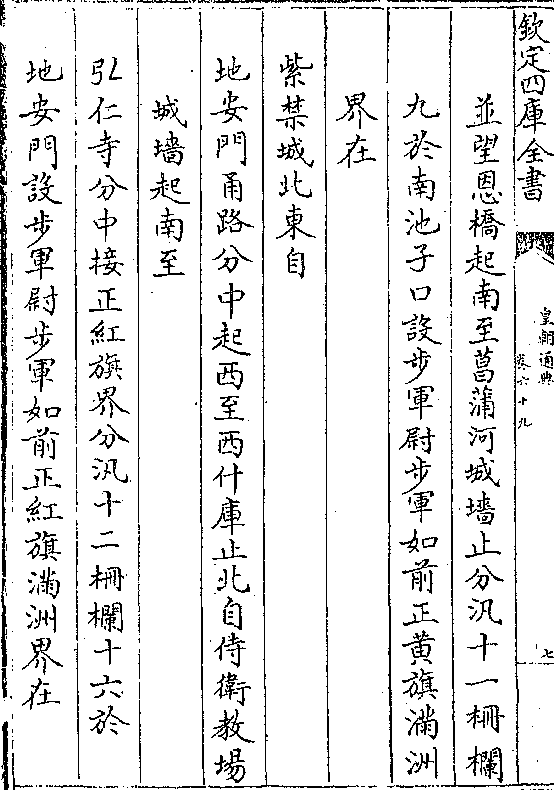 欽定四庫全書
皇朝通典
卷六十九
七
並望恩橋起南至菖蒲河城墻止分汛十一柵欄
九於南池子口設步軍尉步軍如前正黄旗滿洲
界在
紫禁城北東自
地安門甬路分中起西至西什庫止北自侍衛教場
城墻起南至
弘仁寺分中接正紅旗界分汛十二柵欄十六於
地安門設步軍尉步軍如前正紅旗滿洲界在